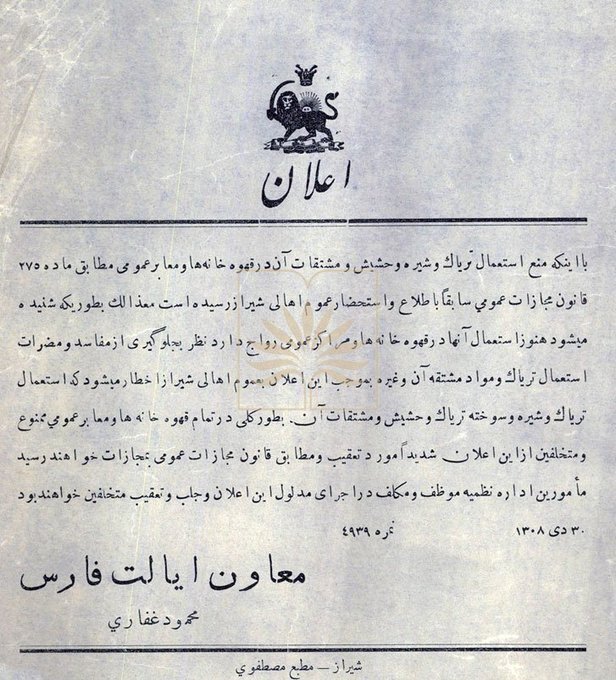 اعلان
با اینکه منع استعمال تریاک و شیره و حشیش و مشتقات آن در قهوه خانه ها و معابر عمومی مطابق ماده ۲۷۵
قانون مجازات عمومی سابقاً باطلاع واستحضار عموم اهالی شیراز رسیده است معذالك بطوریکه شنیده
میشود هنوز استعمال آنها در قهوه خانه ها و مراکز عمومی رواج دارد نظر بجلوگیری از مفاسد و مضرات
استعمال تریاک و مواد مشتقه آن و غیره بموجب این اعلان بعموم اهالی شیراز اخطار میشود که استعمال
تریاک و شیره و سوخته تریاک و حشیش و مشتقات آن. بطور کلی در تمام قهوه خانه ها و معابر عمومی ممنوع
و متخلفین از این اعلان شدیداً مورد تعقیب و مطابق قانون مجازات عمومی بمجازات خواهند رسید
مأمورین اداره نظمیه موظف و مکلف در اجرای مدلول این اعلان وجلب و تعقیب متخلفین خواهند بود
۳۰ دی ۱۳۰۸ نمره ۴۹۳۹
معاون ایالت فارس
محمود غفاري
شیراز – مطبع مصطفوي